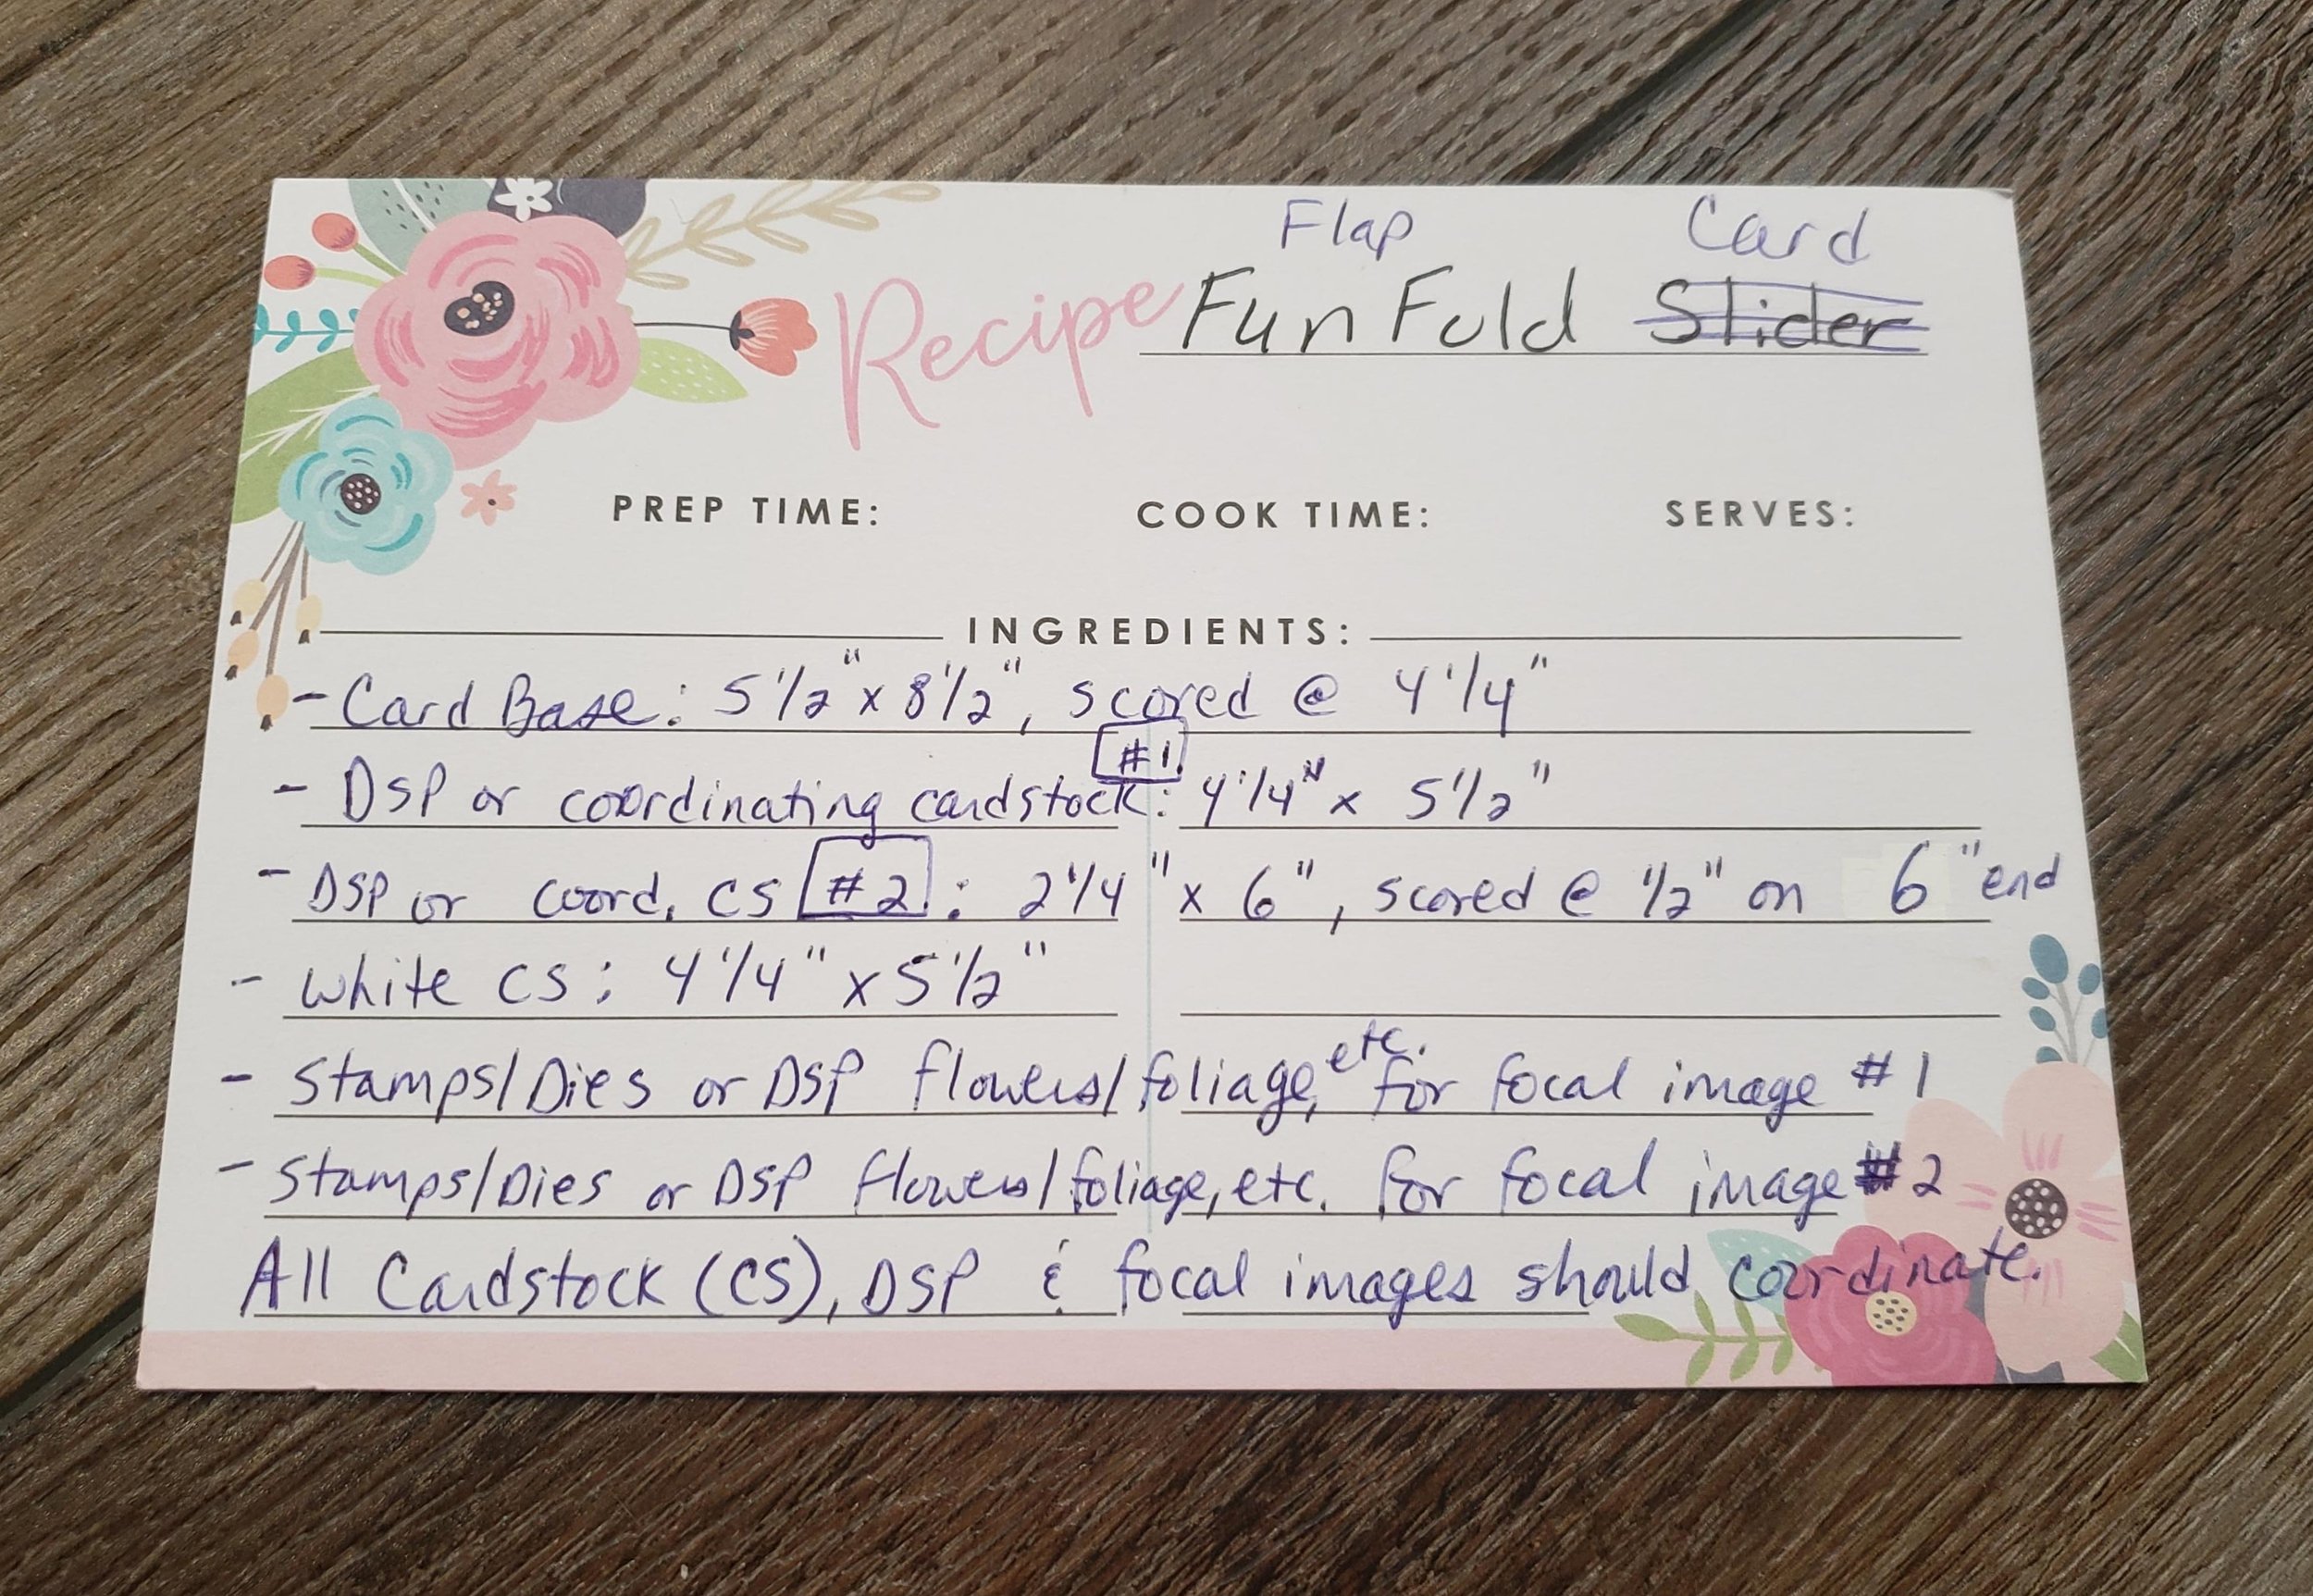 Flap Card
Recipe Fun Fold Slider
PREP TIME: COOK TIME: SERVES:
INGREDIENTS:
- Card Base: 5 1/2" x 8 1/2", scored @ 4 1/4"
#1
- DSP or coordinating cardstock: 4 1/4" x 5 1/2"
- DSP or coord. CS #2: 2 1/4" x 6", scored @ 1/2" on 6" end
- White CS: 4 1/4" x 5 1/2"
- Stamps/Dies or DSP flowers/foliage, etc. for focal image #1
- Stamps/Dies or DSP flowers/foliage, etc. for focal image #2
All Cardstock (CS), DSP & focal images should coordinate.